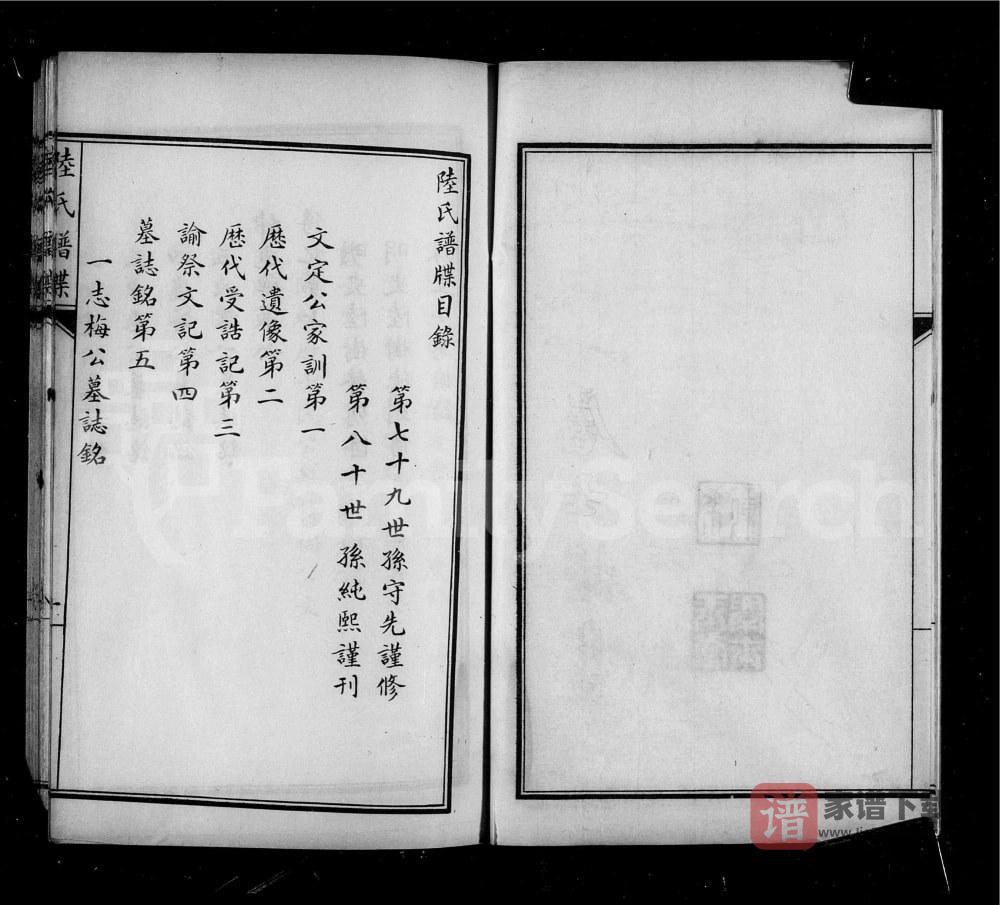 陸氏譜牒目錄
第七十九世孫守先謹修
第八十世孫純熙謹刊
文定公家訓第一
歷代遺像第二
歷代受誥記第三
諭祭文記第四
墓誌銘第五
一志梅公墓誌銘
陸氏譜牒
FamilySearch
谱 家谱下载
www.